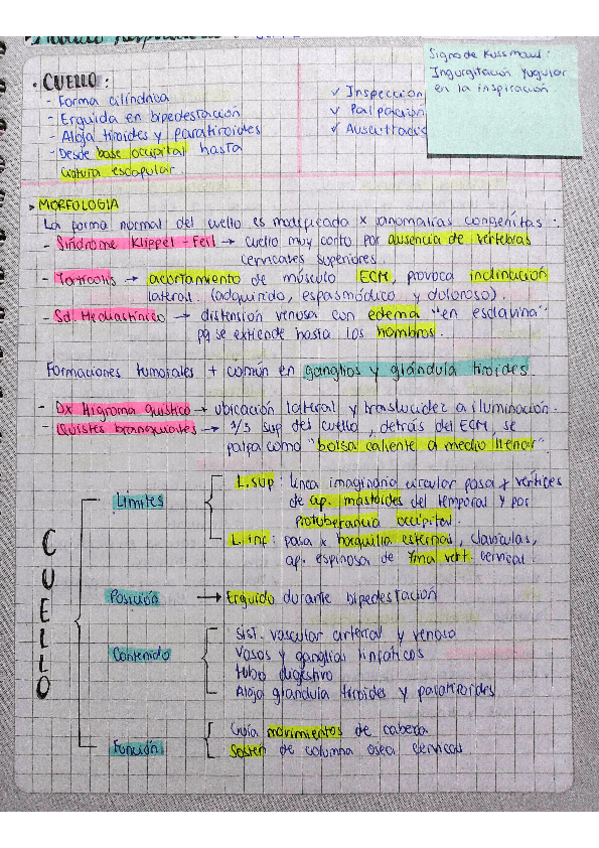 Signo de Kussmaul:
Ingurgitación Yugular
en la inspiración
• CUELLO:
- Forma cilíndrica
- Erguida en bipedestación
- Aloja tiroides y paratiroides
- Desde base occipital hasta
cintura escapular
✓ Inspección
✓ Palpación
✓ Auscultació
➤ MORFOLOGIA
La forma normal del cuello es modificada x anomalías congénitas:
- Síndrome Klippel-Feil → cuello muy corto por ausencia de vértebras
cervicales superiores.
- Tortícolis → acortamiento de músculo ECM, provoca inclinación
lateral. (adquirido, espasmódico y doloroso).
- Sd. Mediastínico → distensión venosa con edema "en esclavina"
pq se extiende hasta los hombros.
Formaciones tumorales + común en ganglios y glándula tiroides.
- Dx Higroma quístico → ubicación lateral y traslucidez a iluminación.
- Quistes branquiales → 1/3 sup del cuello, detrás del ECM, se
palpa como "bolsa caliente a medio llenar".
CUELLO
Límites
L. sup: línea imaginaria circular pasa x vértices
de ap. mastoides del temporal y por
protuberancia occipital.
L. inf: pasa x horquilla esternal, clavículas,
ap. espinosa de 7ma vert. cervical.
Posición → Erguido durante bipedestación
Contenido
Sist. vascular arterial y venoso
Vasos y ganglios linfáticos
tubo digestivo
Aloja glándula tiroides y paratiroides
Función
Guía movimientos de cabeza
Sostén de columna ósea cervical